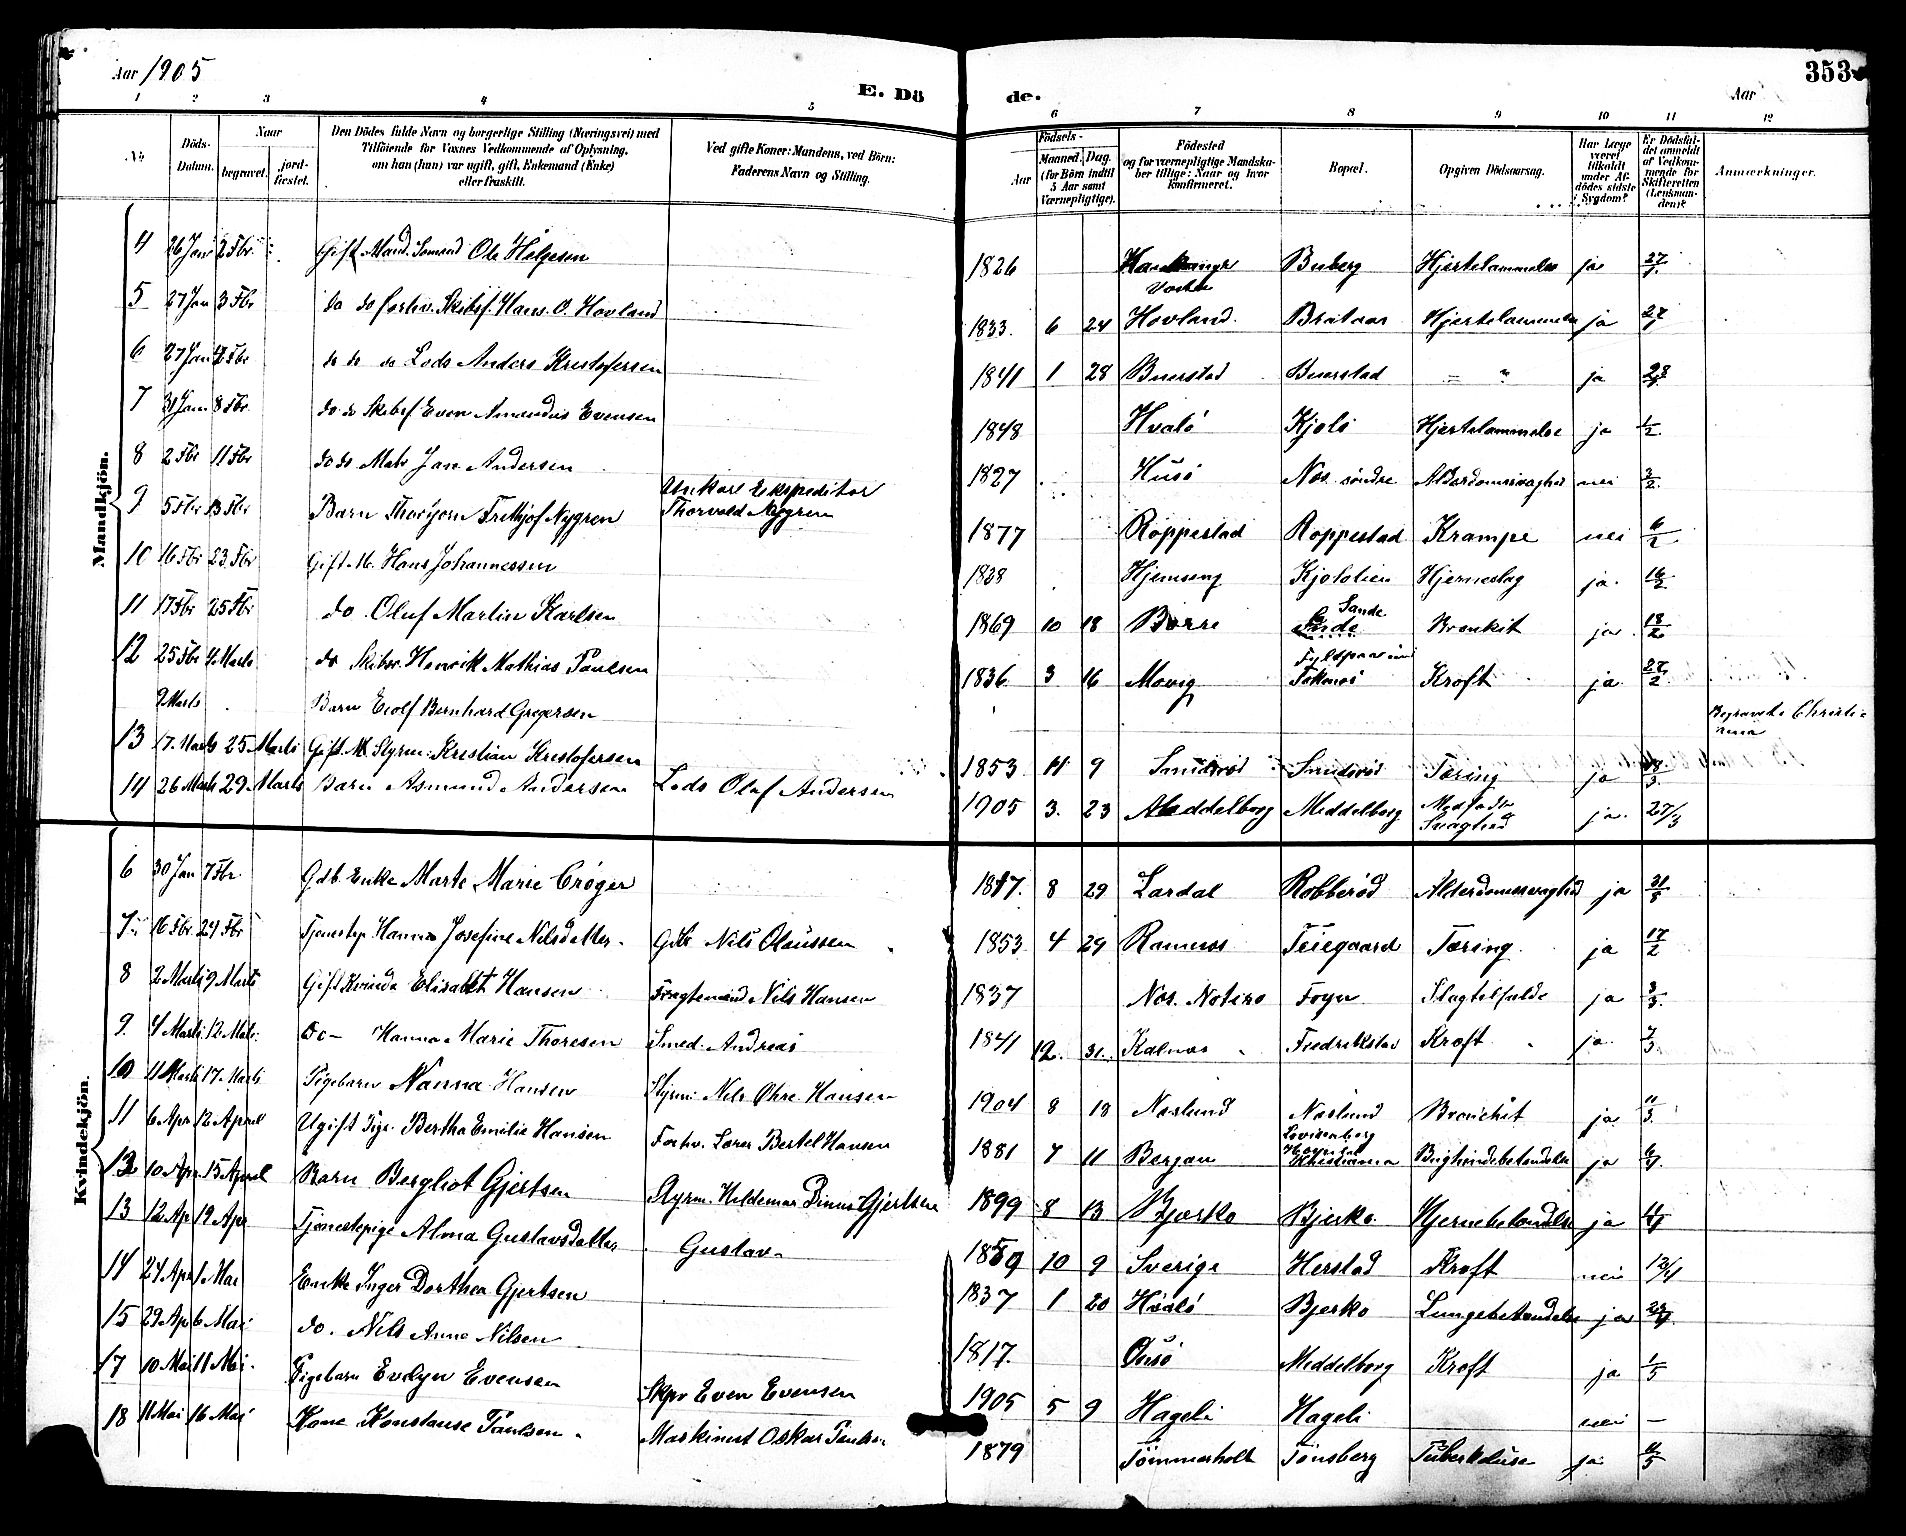 Aar 1905
E. Dö
de.
Aar
353
1 2 3 4 5 6 7 8 9 10 11 12
No
Döds-Datum.
Naar
begravet.
jord-fæstet.
Den Dödes fulde Navn og borgerlige Stilling (Næringsvei) med
Tilföiende for Voxnes Vedkommende af Oplysning,
om han (hun) var ugift, gift, Enkemand (Enke)
eller fraskilt.
Ved gifte Koner: Mandens, ved Börn:
Faderens Navn og Stilling.
Födsels-
Aar
Maaned. Dag.
(for Börn indtil
5 Aar samt
Værnepligtige).
Födested
og for værnepligtige Mandska-
ber tillige: Naar og hvor
konfirmeret.
Bopæl.
Opgiven Dödsaarsag.
Har Læge
været
tilkaldt
under Af-
dödes sidste
Sygdom?
Er Dödsfal-
det anmeldt
af Vedkom-
mende for
Skifteretten
(Lensman-
den)?
Anmærkninger.
Mandkjön.
4 26 Jan 2 Fbr. Gift Mand. Sömand Ole Helgesen 1826 Buberg Hjertelammelse ja 27/1
5 27 Jan 3 Fbr do do forhv. Skibsf. Hans O. Hovland 1833. 6 24 Hovland. Brataas Hjertelammelse ja 27/1
6 27 Jan Fbr do do do Lods Anders Kristofersen 1841 1 28 Buerstad Buerstad — " ja 28/1
7 31 Jan 8 Fbr. do do Skibsf Even Amandus Evensen 1848 Hvalö Kjolö Hjertelammelse ja 1/2
8 2 Fbr 11 Fbr do do Mats Jan Andersen 1827 Husö Nes söndre Alderdomssvaghed nei 3/2
9 5 Fbr 13 Fbr Barn Thorbjorn Frithjof Nygren Thorvald Nygren 1877 Roppestad Roppestad Krampe nei 6/2
10 16 Fbr 23. Fbr Gift M. Hans Johannessen 1838 Hjemseng Hjerneslag ja. 16/2
11 17 Fbr 25 Fbr do. Oluf Martin Karlsen 1869 10 18 Borre Sande Bronkit ja 18/2
12 25 Fbr 4 Marts do Skibsr. Henrik Mathias Paulsen 1836 3 16 Movig Kræft ja 27/2
9 Marts Barn Eiolf Bernhard Gregersen Begravet i Christiania
13 17. Marts 25 Marts Gift M. Styrm: Kristian Kristofersen 1853 11 9 Smidsröd Smidsröd Tæring ja 18/3
14 26 Marts 29 Marts Barn Asmund Andersen Lods Oluf Andersen 1905 3. 23 Meddelborg Meddelborg Medfødt Svaghed ja. 27/3
Kvindekjön.
6 30 Jan 7 Fbr. Gdb. Enke Marte Marie Cröger 1817. 8 29 Lardal Robberöd Alderdomssvaghed ja 31/1
7 16 Fbr. 24 Fbr Tjenestep Hanna Josefine Nilsdatter. Gdb Nils Olaussen 1853. 4 29 Ramnæs Teiegaard Tæring. ja 17/2
8 2 Marts 9 Marts Gift Kvinde Elisabet Hansen Fragtemand Nils Hansen 1837 Nes. Föyn Slagtilfælde ja 3/3
9. 4 Marts 12 Marts Do — Hanna Marie Thoresen Smed. Andreas 1841 12. 31. Kalnæs Fredrikstad Kræft ja. 7/3
10 11 Marts 17 Marts Pigebarn Nanna Hansen Styrm: Nils Ohre Hansen 1904 8 18 Næslund Næslund Bronchit ja 11/3
11 6 Apr 12 April Ugift Pige. Bertha Emilie Hansen Forhv. Lærer Bertel Hansen 1881 7 11 Berjan Lovisenberg Christiania Bughindebetændelse ja
12 10 Apr. 15 April Barn Bergliot Gjertsen Styrm. Hildemar Gjertsen 1899 8 13 Bjerkö Bjerkö Hjernebetændelse ja 11/4
13 12 Apr 19 Apr Tjenestepige Alma Gustavsdatter Gustav 1889 10 9 Sverige Herstad Kræft nei 12/4
14 24 Apr 1 Mai Enke Inger Dorthea Gjertsen 1837 1 20 Hvalö Bjerkö Lungebetændelse ja
15 29 Apr 6 Mai do. Nils Anne Nilsen 1817. Meddelborg Kræft ja 1/5
17 10 Mai 11 Mai. Pigebarn Evelyn Evensen Skpr Even Evensen 1905 5 9 Hageli Hageli nei —
18 11 Mai 16 Mai Kone Konstanse Paulsen. Maskinist Oskar Paulsen 1879 Tömmerholt Tönsberg Tuberkulose ja 11/5